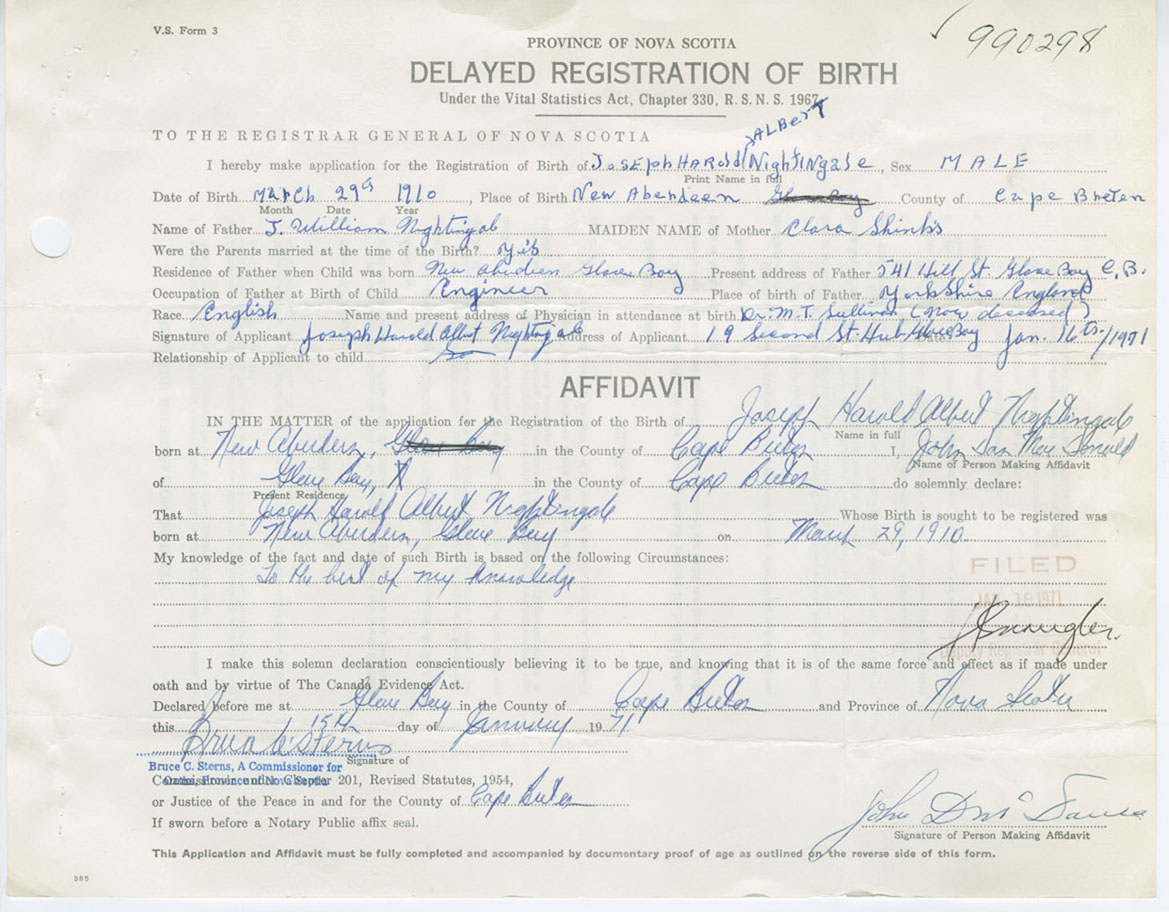 V.S. Form 3
990298
PROVINCE OF NOVA SCOTIA
DELAYED REGISTRATION OF BIRTH
Under the Vital Statistics Act, Chapter 330, R.S.N.S. 1967
TO THE REGISTRAR GENERAL OF NOVA SCOTIA
ALBerT
I hereby make application for the Registration of Birth of JosEphHArold NightINgale, Sex MALE
Print Name in full
Date of Birth March 29th 1910, Place of Birth New Aberdeen Glace Bay County of Cape Breton
Month Date Year
Name of Father J. William Nightingale MAIDEN NAME of Mother Clara
Were the Parents married at the time of the Birth? yes
Residence of Father when Child was born New Glace Bay Present address of Father 541 Hill St. Glace Bay C.B.
Occupation of Father at Birth of Child Engineer Place of birth of Father Yorkshire England
Race English Name and present address of Physician in attendance at birth Dr. M.T. Sullivan (now deceased)
Signature of Applicant Joseph Harold Albert Nightingale Address of Applicant 19 Second St. Hub Glace Bay Date Jan. 16th/1971
Relationship of Applicant to child Son
AFFIDAVIT
IN THE MATTER of the application for the Registration of the Birth of Joseph Harold Albert Nightingale
Name in full
born at New Aberdeen, Glace Bay in the County of Cape Breton I, John Ian MacDonald
Name of Person Making Affidavit
of Glace Bay, in the County of Cape Breton do solemnly declare:
Present Residence
That Joseph Harold Albert Nightingale Whose Birth is sought to be registered was
born at New Aberdeen, Glace Bay on March 29, 1910
My knowledge of the fact and date of such Birth is based on the following Circumstances:
To the best of my knowledge
FILED
JAN 18 1971
Deputy Registrar General
I make this solemn declaration conscientiously believing it to be true, and knowing that it is of the same force and effect as if made under
oath and by virtue of The Canada Evidence Act.
Declared before me at Glace Bay in the County of Cape Breton and Province of Nova Scotia
this 15th day of January 1971
Bruce C. Sterns
Signature of
Bruce C. Sterns, A Commissioner for
Oaths, Province of Nova Scotia
Commissioner under Chapter 201, Revised Statutes, 1954,
or Justice of the Peace in and for the County of Cape Breton
If sworn before a Notary Public affix seal.
Signature of Person Making Affidavit
This Application and Affidavit must be fully completed and accompanied by documentary proof of age as outlined on the reverse side of this form.
385